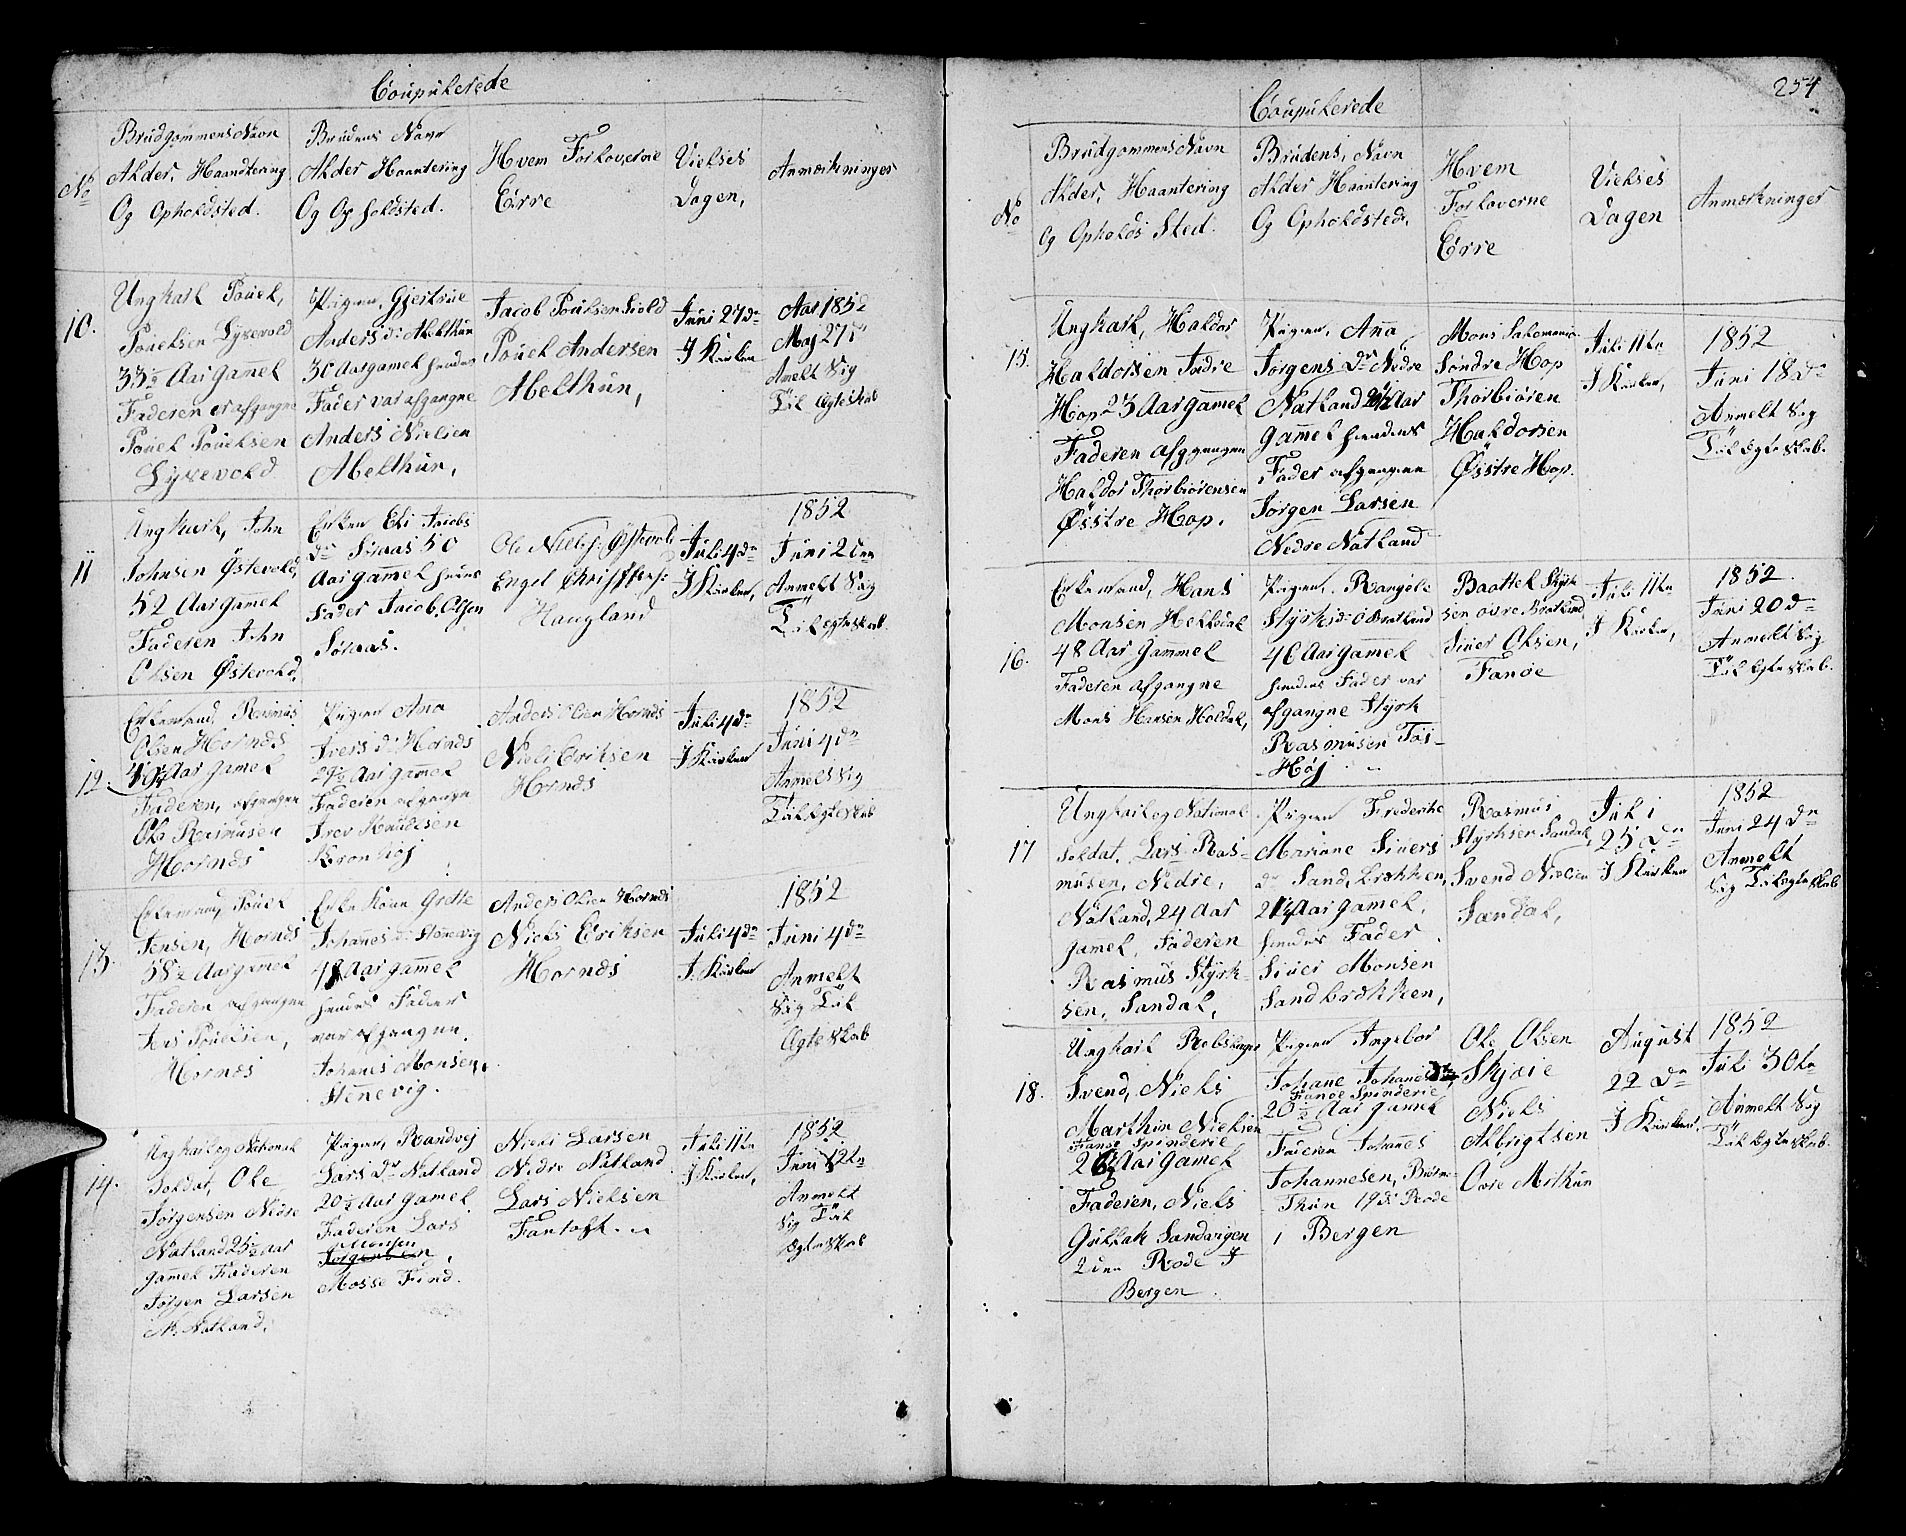 Coupulerede
No
Brudgommens Navn
Alder, Haandtering
Og Opholdsted.
Brudens Navn
Alder Haantering
Og Opholdsted.
Hvem Forloverne
Erre
Vielses
Dagen,
Anmærkninger
10.
Ungkarl Pouel,
Pouelsen Lyxevold
33½ Aar Gamel
Faderen er afgangne
Pouel Pouelsen
Lyxevold
Pigen, Gjertrue
Anders dr Abelthun
30 Aar gamel hendes
Fader var afgangne
Anders Nielsen
Abelthun,
Jacob Poulsen Liold
Pouel Andersen
Abelthun,
Juni 27de
I Kirken
Aar 1852
Maj 27de
Amelt Sig
Til Egteskab
11
Ungkarl, John
Johnsen Østevold,
52 Aar gamel
Faderen John
Olsen Østevold,
Enken Eli Jacobs
dr Sønaas 50
Aar gammel hendes
Fader Jacob Olsen
Sønaas.
Ole Niels: Østevold
Engel Christens:
Haugland
Juli 4de
I Kirken,
1852
Juni 2den
Anmelt Sig
Til Egteskab.
12.
Enkemand, Rasmus
Olsen Hornæs
49½ Aar gamel
Faderen, afgangne
Ole Rasmusen
Hornæs
Pigen Ana
Ivers dr Hornæs
29½ Aar gamel
Faderen afgangne
Iver Knudsen
Kronhøj
Anders Olsen Hornæs
Niels Eriksen
Hornæs
Juli 4de
I Kirken
1852
Juni 4de
Anmelt Sig
Til Egteskab
13.
Enkemand, Pouel
Jensen, Hornæs
58½ Aar gamel
Faderen afgangne
Jens Pouelsen,
Hornæs
Enke Kone Grette
Johannes dr Stenevig
48 Aar gamel
hendes Fader
var afgangne
Johanes Monsen,
Stenevig.
Anders Olsen Hornæs
Niels Eriksen
Hornæs
Juli 4de
I. Kirken
1852
Juni 4de
Anmelt
Sig Til
Egteskab
14.
Ungkarl og National
Soldat, Ole
Jørgensen Nedre
Natland 25½ Aar
gammel Faderen
Jørgen Larsen
N. Natland,
Pigen, Randvej
Lars dr Natland
20½ Aar gamel
Faderen Lars
Monsen
Jørgensen,
Mosse Find.
Niels Larsen
Nedre Natland
Lars Nielsen
Fantoft.
Juli 11te
I Kirken,
1852
Juni 12te
Anmelt
Sig Til
Egteskab
254
Coupulerede
No
Brudgommens Navn
Alder, Haantering
Og Opholds Sted.
Brudens, Navn
Alder Haantering
Og Opholdsted.
Hvem
Forloverne
Erre
Vielses
Dagen
Anmærkninger
15.
Ungkarl, Haldor
Haldorsen Indre
Hop 23 Aar gamel
Faderen afgangen
Haldor Thorbiørensen
Østre Hop.
Pigen, Ana
Jørgens Dr Nedre
Natland 20½ Aar
gammel hendes
Fader afgangne
Jørgen Larsen
Nedre Natland
Mons Salomonse
Søndre Hop
Thorbiøren
Haldorsen
Østre Hop.
Juli 11te
I Kirken,
1852
Juni 18de
Anmelt Sig
Til Egteskab.
16.
Enkemand, Hans
Monsen Heldal
48 Aar gammel
Faderen afgangne
Mons Hansen Holdal,
Pigen, Rangele
Styrks dr O Bratland
40 Aar gamel
hendes Fader var
afgangne Styrk
Rasmusen
Høj
Baattel Styrk
sen øvre Bratland
Siver Olsen,
Fanøe
Juli 11te
I Kirken,
1852.
Juni 20de
Anmelt Sig
Til Egteskab.
17
Ungkarl og National
Soldat, Lars Ras-
musen, Nedre,
Natland, 24 Aar
gamel, Faderen
Rasmus Styrk-
sen, Sandal,
Pigen Frederike
Mariane Sivers
dr Sandbrekken,
21 Aar gamel,
hendes Fader
Siver Monsen
Sandbrekken,
Rasmus
Styrksen Sandal,
Svend Nielsen
Sandal,
Juli
25de
I Kirken
1852
Juni 24de
Anmelt
Sig Til Egteskab
18.
Ungkarl Rebslager
Svend, Niels
Marthin Nielsen
Fanøe Spinderie
26 Aar gamel
Faderen, Niels
Gullak Sandvigen
2den Rode I
Bergen
Pigen Ingebor
Johane Johanes dr
Fanøe Spinderie
20½ Aar gamel
Faderen Johannes
Johannesen,
Thun 19de Rode
i Bergen
Ole Olsen
Skjoie
Niels
Albrigtsen
Øvre Mithun
August
22de
I Kirken,
1852
Juli 30te
Anmelt Sig
Til Egteskab.